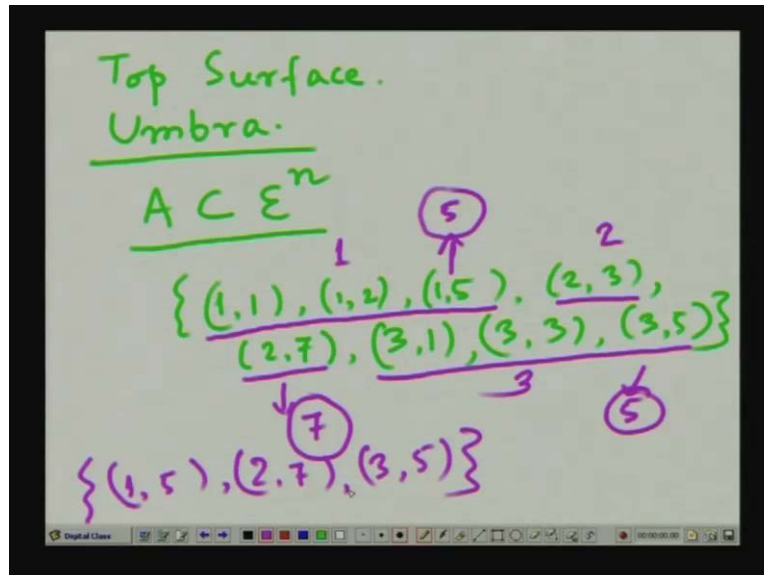 Top Surface.
Umbra.
A ⊂ Ɛⁿ
5
1 2
{(1,1), (1,2), (1,5). (2,3),
(2,7), (3,1), (3,3), (3,5)}
3
7 5
{(1,5), (2,7), (3,5)}
Digital Class 00:00:00.00